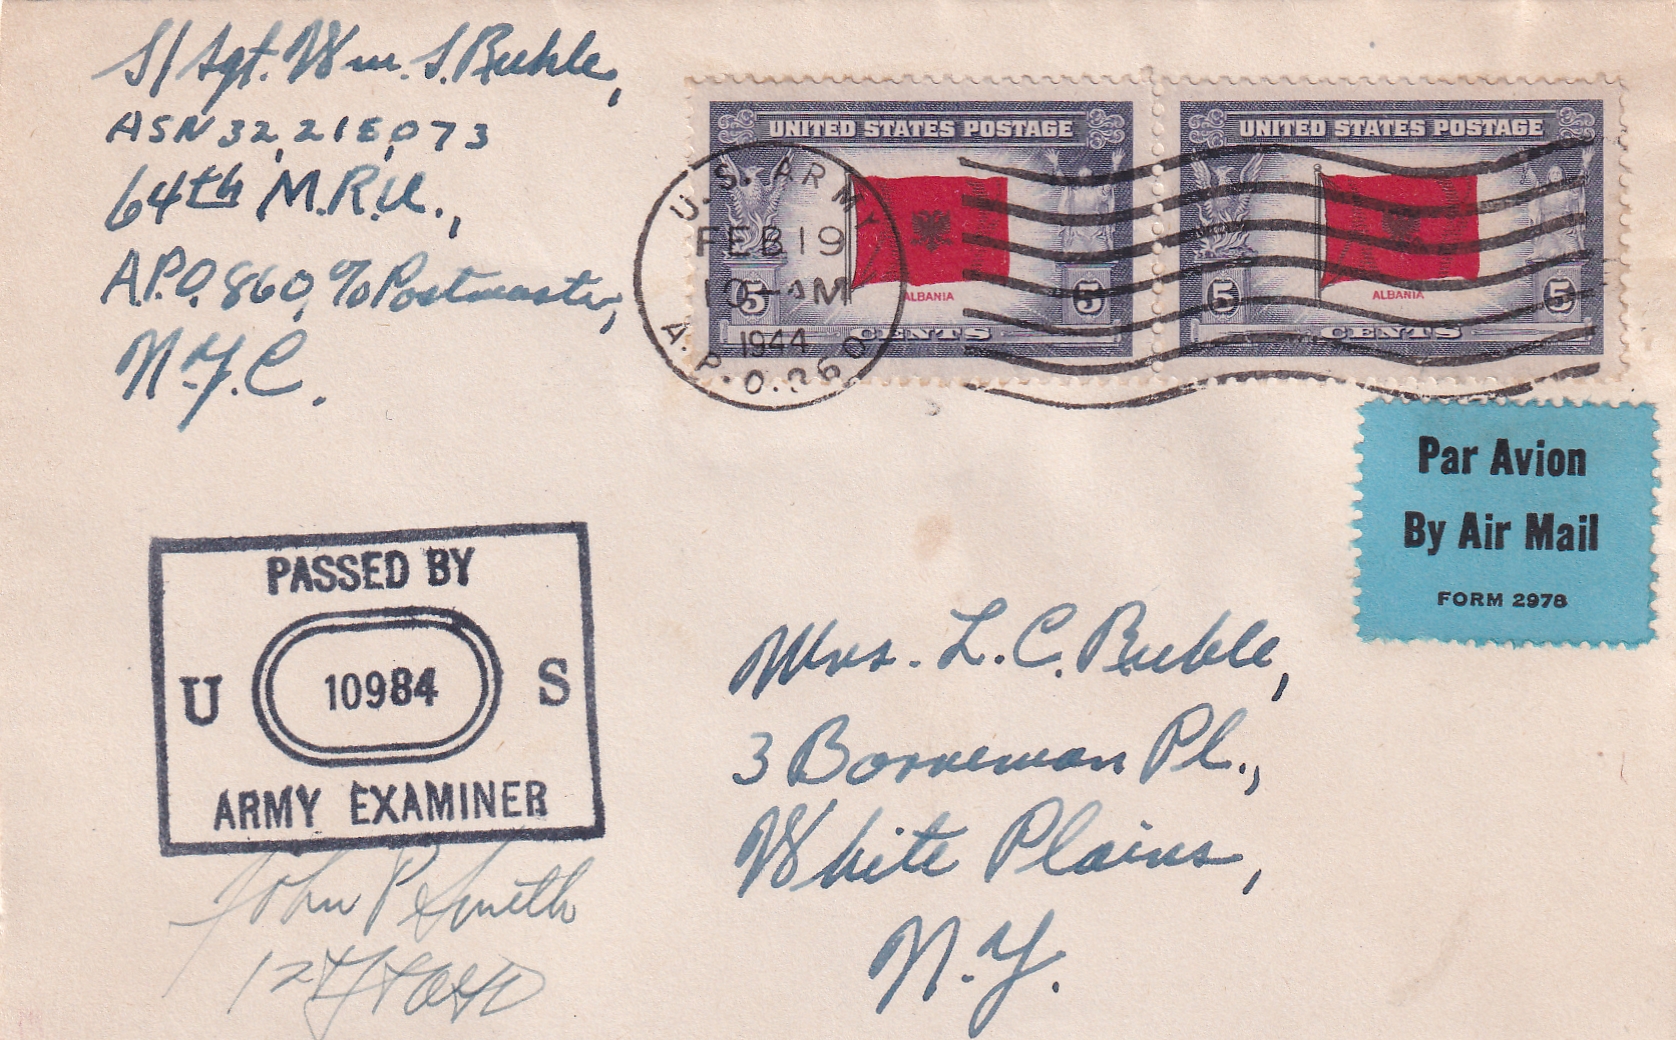 S/Sgt. Wm. S. Buhle,
ASN 32,218,073
64th M.R.U.,
A.P.O. 860, c/o Postmaster,
N.Y.C.
UNITED STATES POSTAGE
ALBANIA
5 CENTS 5
UNITED STATES POSTAGE
ALBANIA
5 CENTS 5
U.S. ARMY
FEB 19
10-AM
1944
A.P.O.
Par Avion
By Air Mail
FORM 2978
PASSED BY
U 10984 S
ARMY EXAMINER
John P Smith
Mrs. L. C. Buhle,
3 Borneman Pl.,
White Plains,
N.Y.